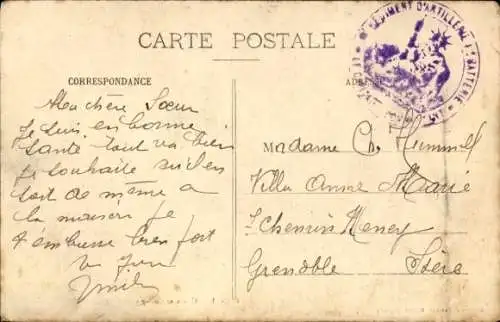 CARTE POSTALE
RÉGIMENT D'ARTILLERIE BATTERIE
CORRESPONDANCE
ADRESSE
Ma chère Sœur
Je suis en bonne
santé tout va bien
Je souhaite qu'il en
soit de même a
la maison Je
t'embrasse bien fort
Madame Ch. Hummel
Villa Anne Marie
Chemin
Grenoble Isère